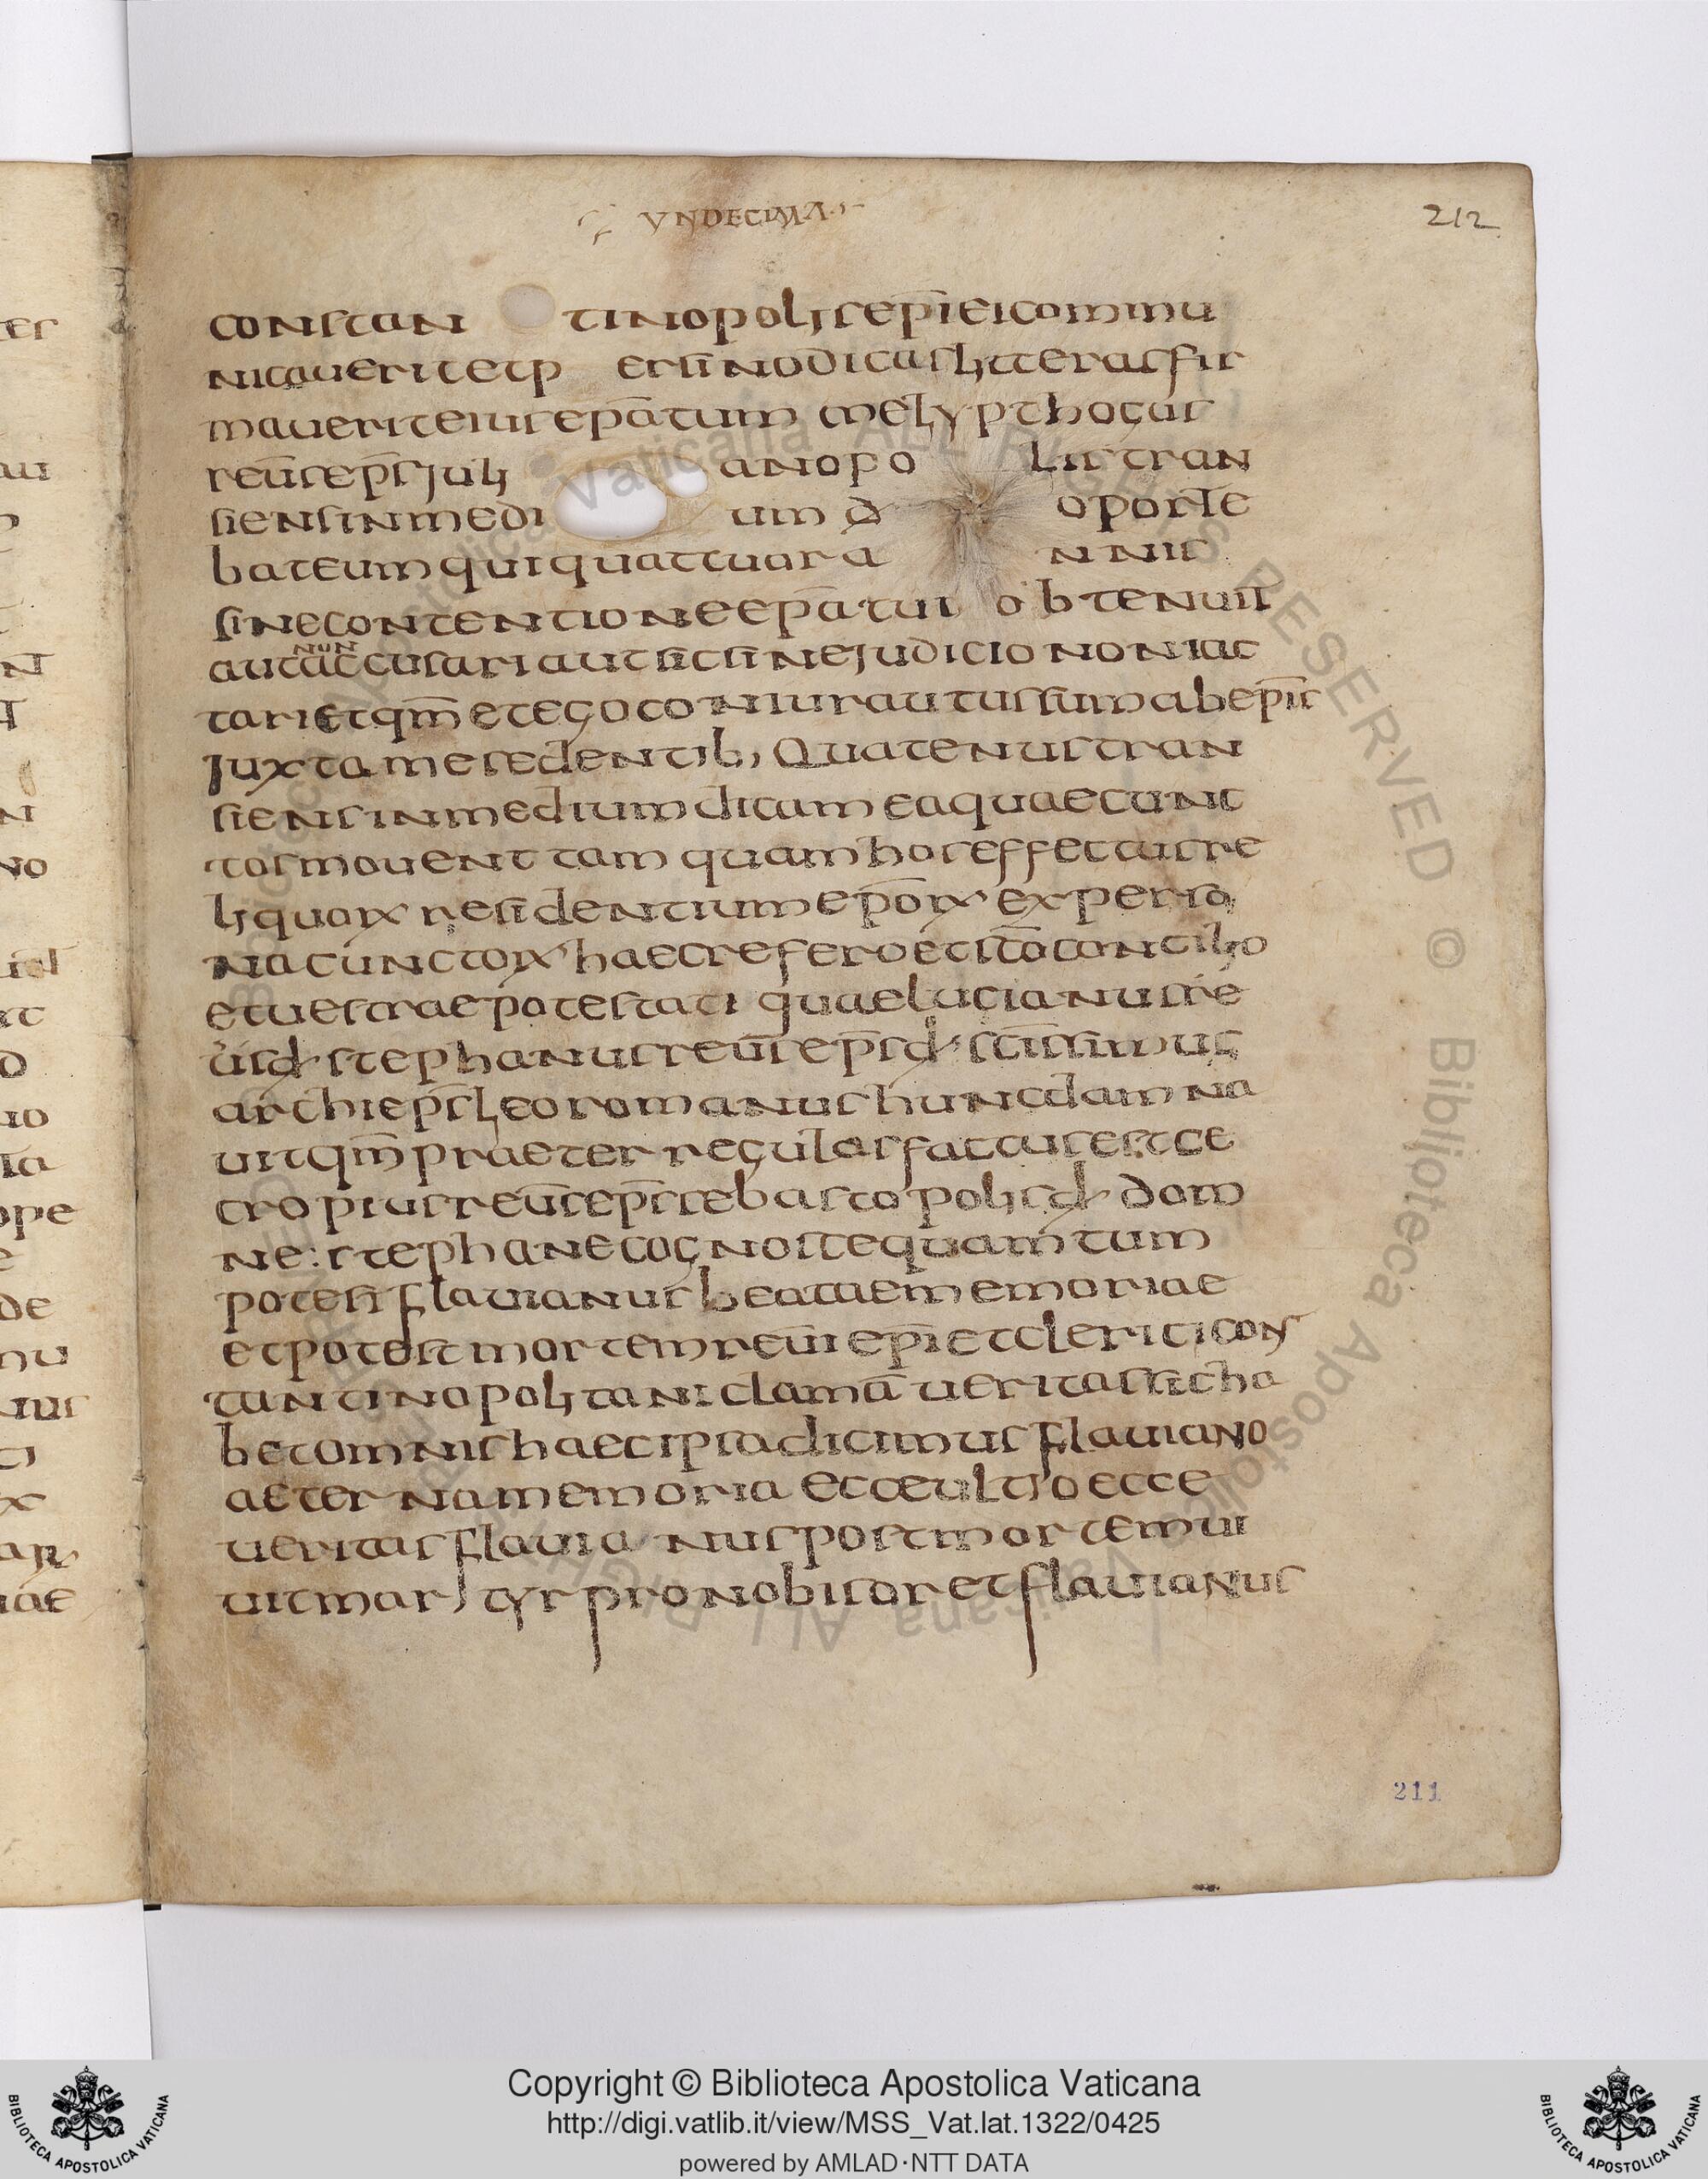 VNDECIMA
212
constan tinopolis ep̄i ei commu
nicaverit et p er sinodicas litteras fir
maverit eius ep̄atum melypthogus
reū s ep̄s juli anopo lis tran
siens in medi um đ oporte
bat eum qui quattuor a nnis
sine contentione ep̄atui obtenuit
non
aut accusari aut sic sine judicio non iac
tari et qm̄ et ego coniuratus sum ab ep̄is
juxta me sedentib; Quatenus tran
siens in medium dicam ea quae cunc
tos movent tam quam hos effectus re
liquorx residentium ep̄orx ex perso
na cunctorx haec refero et sc̄o concilio
et vestrae potestati quae lucianus re
ūs đ stephanus reūs ep̄s đ sc̄issimus
archiep̄s leo romanus hunc damna
vit qm̄ praeter regulas factus est ce
cropius reūs ep̄s sebastopolis đ dom
ne: stephane cognosce quam tum
potest flavianus beatae memoriae
et potest mortem reūi ep̄i et clerici cons
tantinopolitani clamā veritas sic ha
bet omnis haec ipsa dicimus flaviano
aeterna memoria ecce ultio ecce
veritas flavia nus post mortem vi
vit mar tyr pro nobis oret flavianus
211
Copyright © Biblioteca Apostolica Vaticana
http://digi.vatlib.it/view/MSS_Vat.lat.1322/0425
powered by AMLAD·NTT DATA
BIBLIOTECA APOSTOLICA VATICANA
BIBLIOTECA APOSTOLICA VATICANA